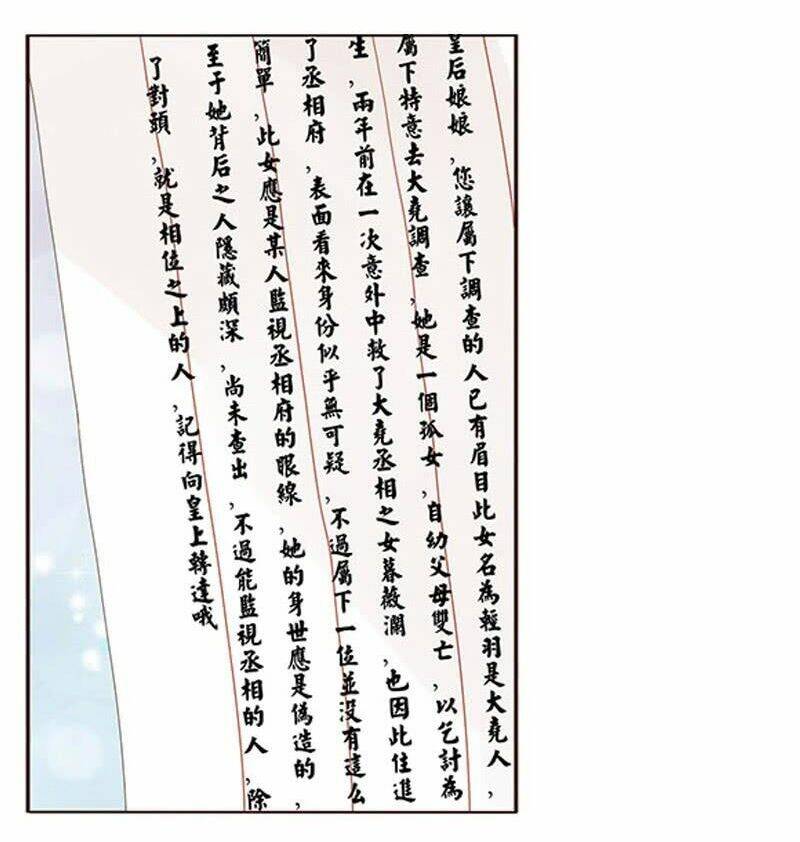 皇后娘娘,您讓屬下調查的人已有眉目此女名為輕羽是大堯人,
屬下特意去大堯調查,她是一個孤女,自幼父母雙亡,以乞討為
生,兩年前在一次意外中救了大堯丞相之女暮薇瀾,也因此住進
了丞相府,表面看來身份似乎無可疑,不過屬下一位並沒有這么
簡單,此女應是某人監視丞相府的眼線,她的身世應是偽造的,
至于她背后之人隱藏頗深,尚未查出,不過能監視丞相的人,除
了對頭,就是相位之上的人,記得向皇上轉達哦